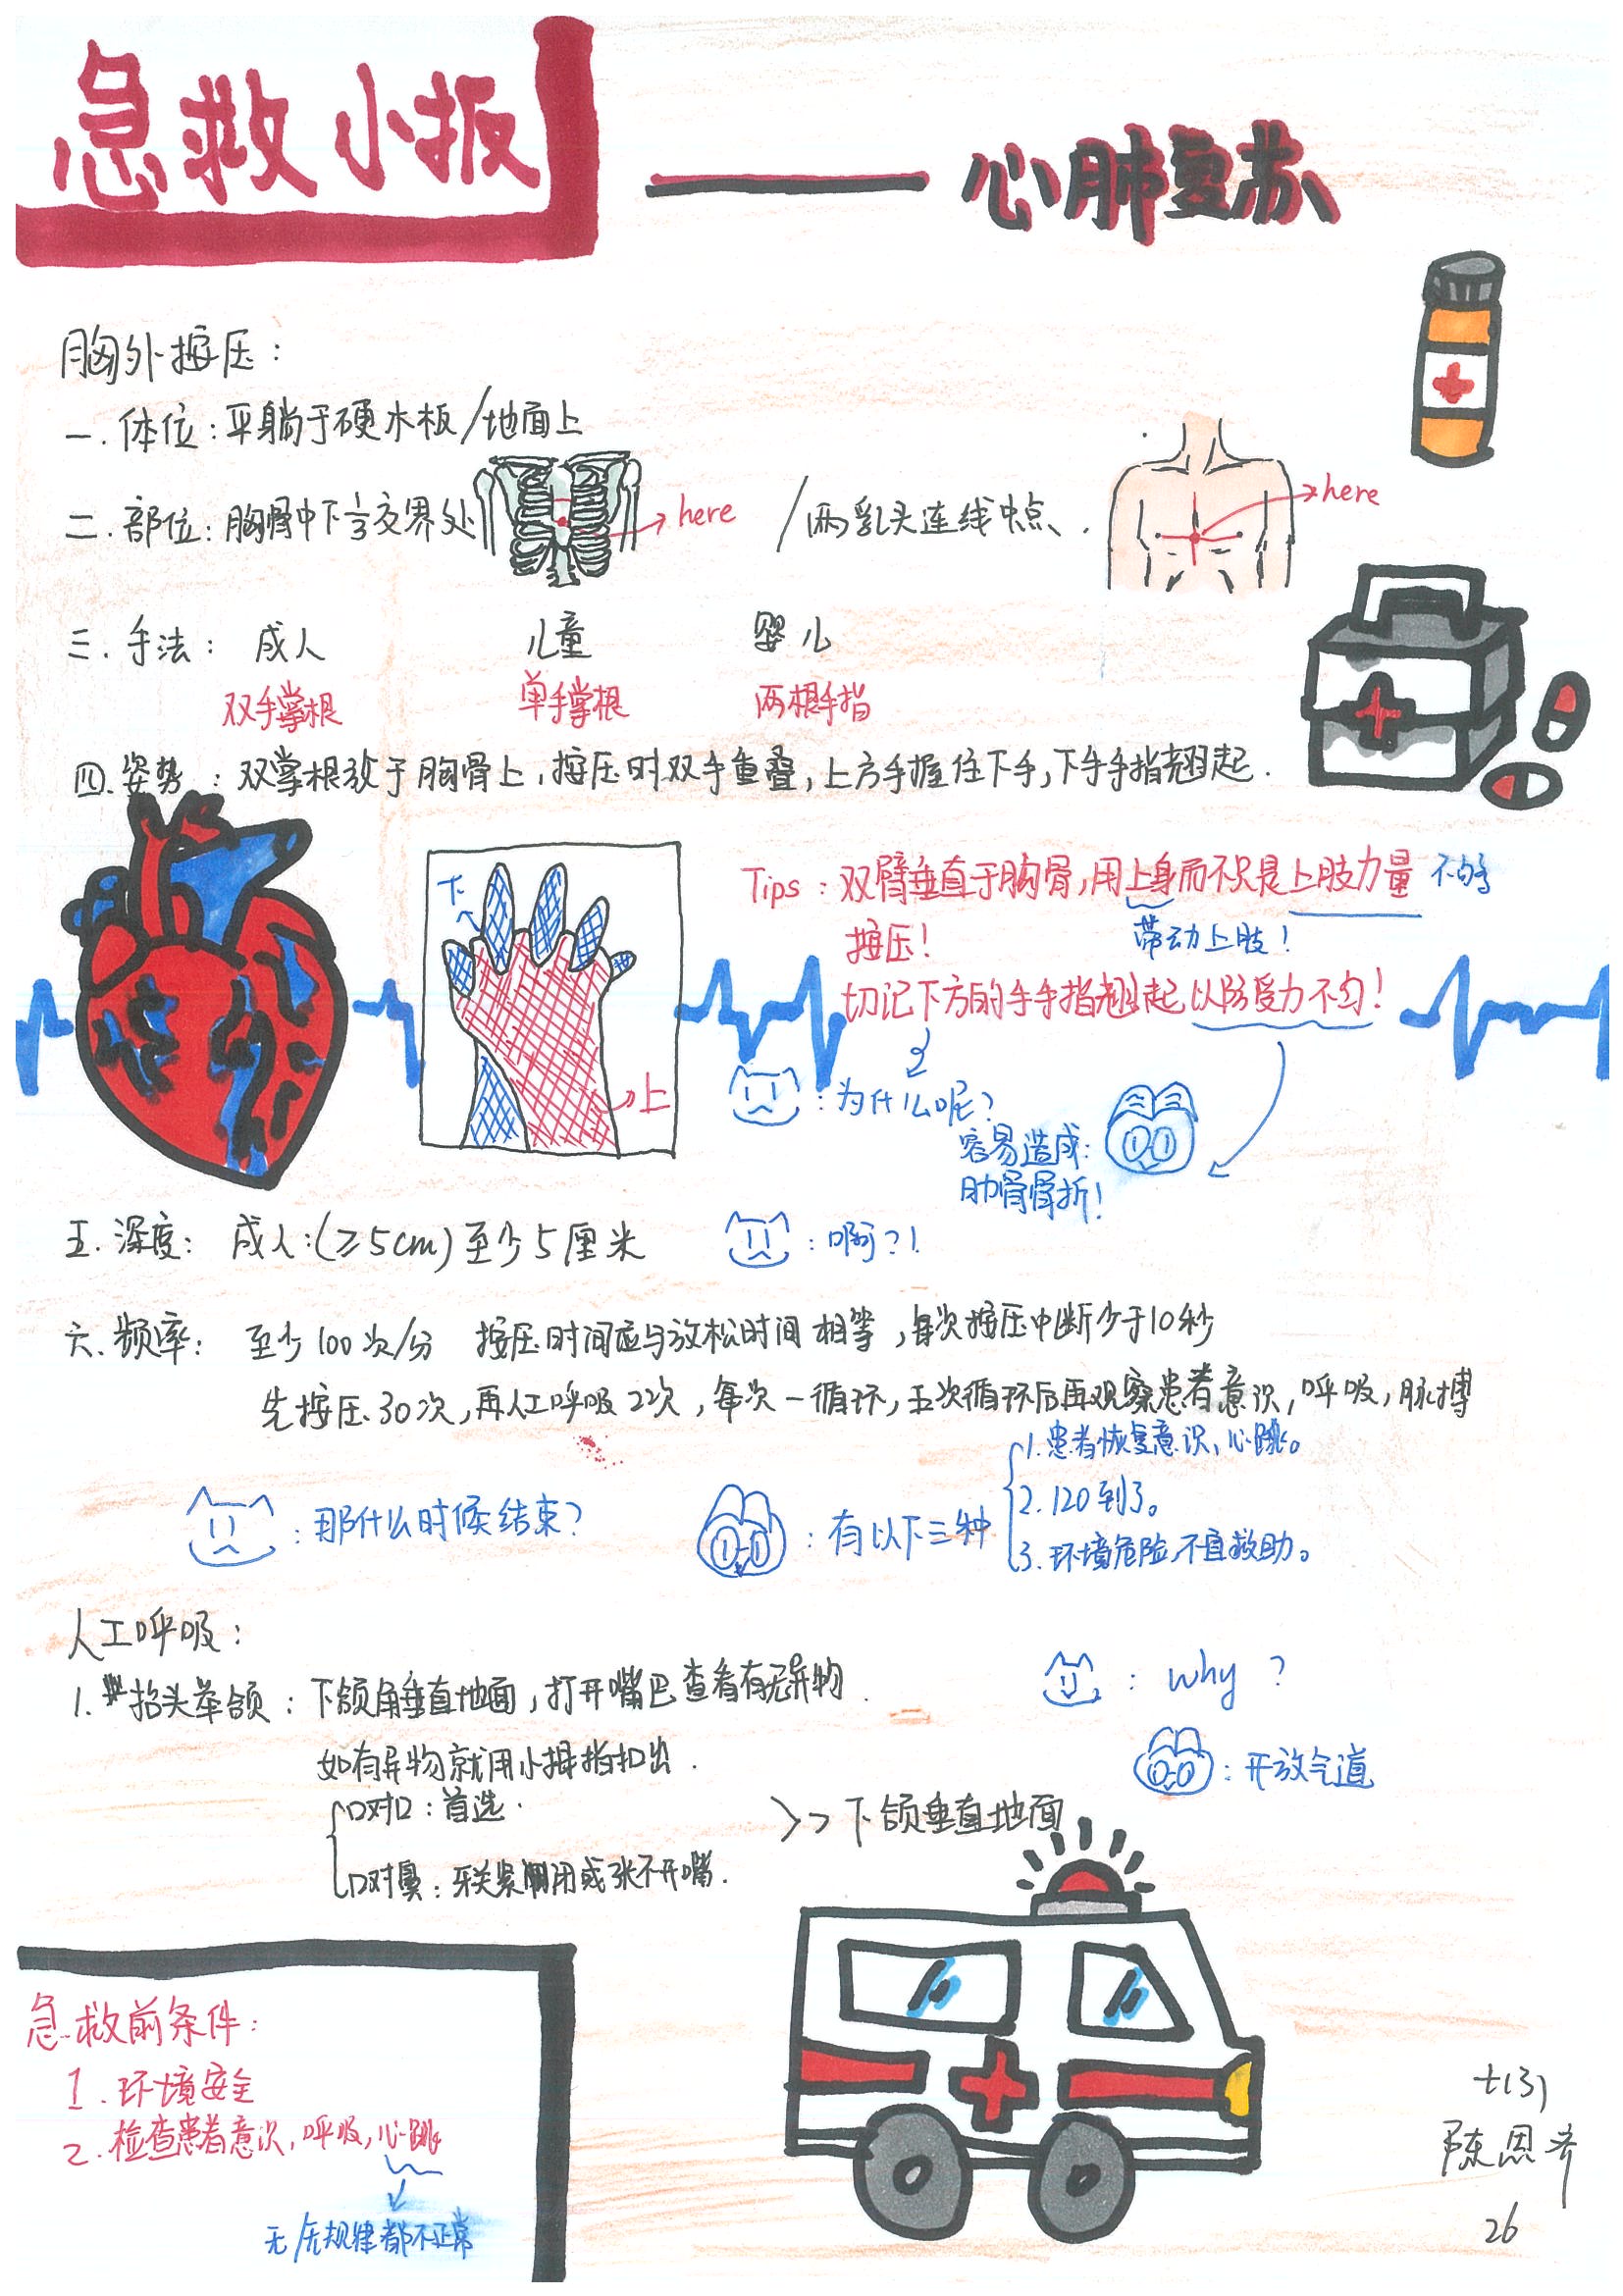 急救小报
——心肺复苏
胸外按压：
一.体位：平躺于硬木板/地面上
二.部位：胸骨中下⅓交界处 → here /两乳头连线中点. → here
三.手法： 成人 儿童 婴儿
双手掌根 单手掌根 两根手指
四.姿势：双掌根放于胸骨上，按压时双手重叠，上方手握住下手，下手手指翘起.
下
上
Tips：双臂垂直于胸骨，用上身而不只是上肢力量 不够
按压！ 带动上肢！
切记下方的手手指翘起以防受力不匀！
：为什么呢？
容易造成：
肋骨骨折！
五.深度： 成人：(≥5cm)至少5厘米 ：啊？！
六.频率： 至少100次/分 按压时间应与放松时间相等，每次按压中断少于10秒
先按压30次，再人工呼吸2次，每次一循环，五次循环后再观察患者意识，呼吸，脉搏
：那什么时候结束？ ：有以下三种
1.患者恢复意识，心跳。
2.120到了。
3.环境危险，不宜救助。
人工呼吸：
1.抬头举颌：下颌角垂直地面，打开嘴巴查看有无异物.
：why？
如有异物就用小拇指扣出.
：开放气道
口对口：首选.
>>下颌垂直地面
口对鼻：牙关紧闭或张不开嘴.
急救前条件：
1.环境安全
2.检查患者意识，呼吸，心跳
无/无规律都不正常
七(3)
陈恩齐
26